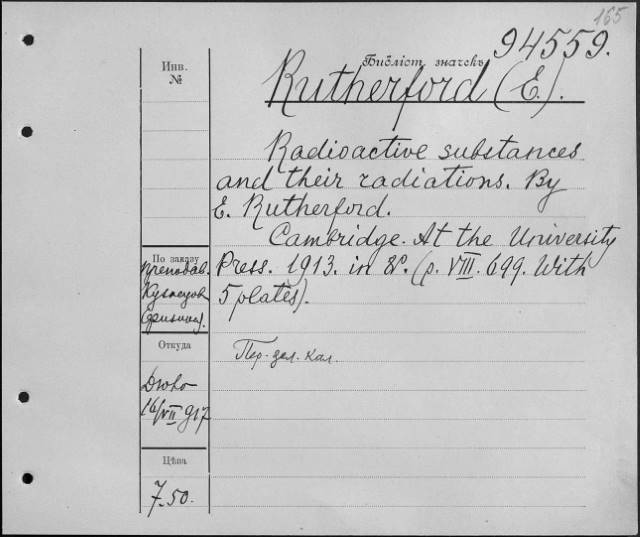 165
94559.
Инв.
№
Библіот. значекъ
Rutherford (E.).
Radioactive substances
and their radiations. By
E. Rutherford.
Cambridge. At the University
Press. 1913. in 8º. (p. VIII. 699. With
5 plates).
По заказу
препода&.
Кузнецов
(физика).
Откуда
16/VII 917
Цѣна
7.50.
Пер. дел. кал.